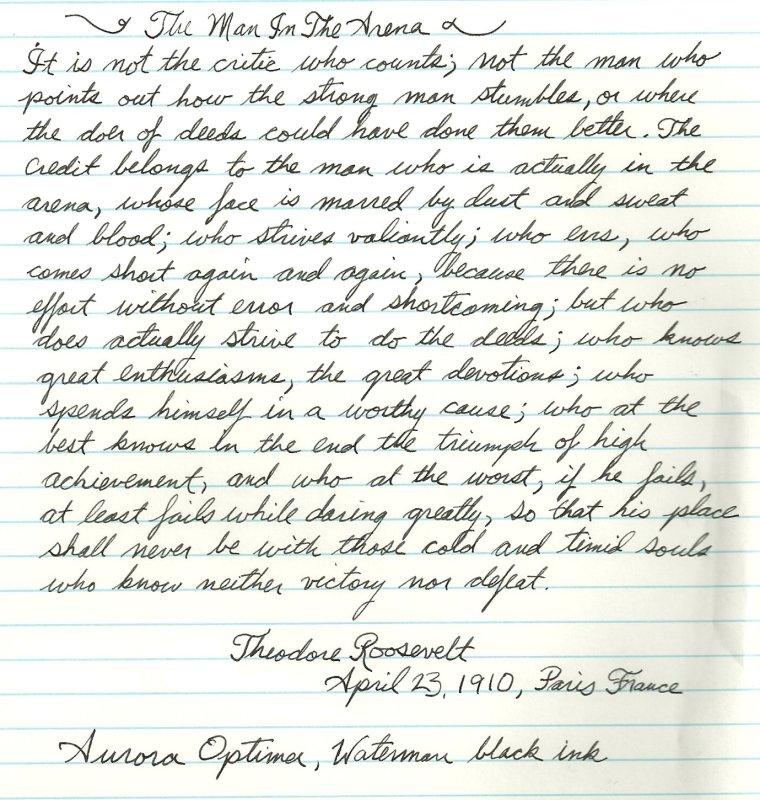 The Man In The Arena
It is not the critic who counts; not the man who
points out how the strong man stumbles, or where
the doer of deeds could have done them better. The
credit belongs to the man who is actually in the
arena, whose face is marred by dust and sweat
and blood; who strives valiantly; who errs, who
comes short again and again, because there is no
effort without error and shortcoming; but who
does actually strive to do the deeds; who knows
great enthusiasms, the great devotions; who
spends himself in a worthy cause; who at the
best knows in the end the triumph of high
achievement, and who at the worst, if he fails,
at least fails while daring greatly, so that his place
shall never be with those cold and timid souls
who know neither victory nor defeat.
Theodore Roosevelt
April 23, 1910, Paris France
Aurora Optima, Waterman black ink